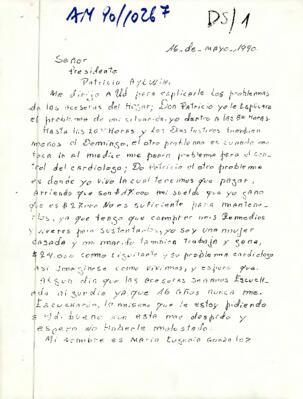 AM 90/10267
DS/1
16-de-mayo-1990.
Señor
Presidente
Patricio Aylwin.
Me dirijo A Ud para explicarle los problemas
de las acesoras del Hogar; Don Patricio yo le Esplicare
el problema de mi situación. yo dentro a las 8 Horas
Hasta las 20 Horas y los Dias festivos tambien
menos el Domingo, el otro problema es cuando me
toca ir al medico me ponen problema para el con
trol del cardiologo; Do Patricio el otro problema
es donde yo vivo la cual tenemos que pagar
Arriendo que son $ 17.000 mi sueldo que yo gano
que es $ 27.000 No es suficiente para mantener
los, ya que tengo que comprar mis Remedios
y viveres para sustentarlos, yo soy una mujer
casada y mi marido tambien trabaja y gana,
$ 24.000 como liquidante y su problema cardiologo
Asi Imaginese como vivimos, y espero que
Algun dia que las acesoras seamos Escucha
das algun dia ya que 16 Años nunca me
Escucharon, la mismo que le estoy pidiendo
a Ud. bueno con esta me despido y
espero No Haberle molestado.
Mi nombre es Maria Eugenia Gonzalez